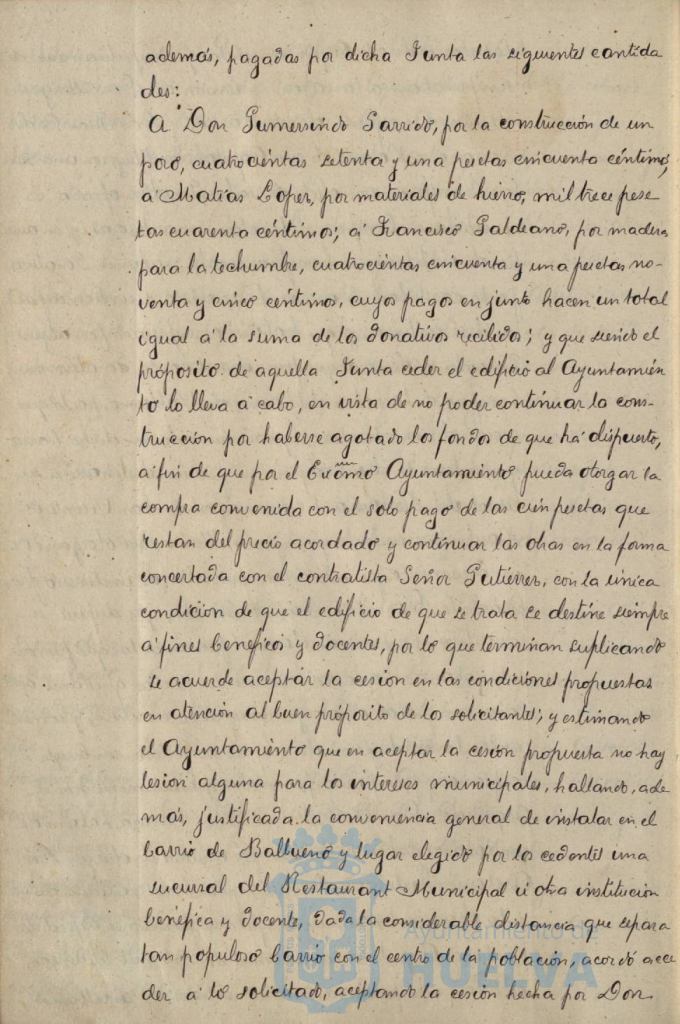 además, pagadas por dicha Junta las siguientes cantida
des:
A Don Gumersindo Garrido, por la construcción de un
pozo, cuatrocientas setenta y una pesetas cincuenta céntimos,
á Matías Lopez, por materiales de hierro, mil trece pese
tas cuarenta céntimos; á Francisco Galdeano, por madera
para la techumbre, cuatrocientas cincuenta y una pesetas no-
venta y cinco céntimos, cuyos pagos en junto hacen un total
igual á la suma de los donativos recibidos; y que siendo el
próposito de aquella Junta ceder el edificio al Ayuntamien
to lo lleva á cabo, en vista de no poder continuar la cons-
trucción por haberse agotado los fondos de que há dispuesto,
á fin de que por el Excmo Ayuntamiento pueda otorgar la
compra convenida con el solo pago de las cien pesetas que
restan del precio acordado y continuar las obras en la forma
concertada con el contratista Señor Gutiérrez, con la única
condición de que el edificio de que se trata se destine siempre
á fines beneficos y docentes, por lo que terminan suplicando
se acuerde aceptar la cesión en las condiciones propuestas
en atención al buen próposito de los solicitantes; y estimando
el Ayuntamiento que en aceptar la cesión propuesta no hay
lesion alguna para los intereses municipales, hallando, ade
más, justificada la conveniencia general de instalar en el
barrio de Balbueno y lugar elegido por los cedentes una
sucursal del Restaurant Municipal ú otra institución
benéfica y docente, dada la considerable distancia que separa
tan populoso barrio con el centro de la población, acordó acce
der á lo solicitado, aceptando la cesión hecha por Don
Ayuntamiento de
HUELVA